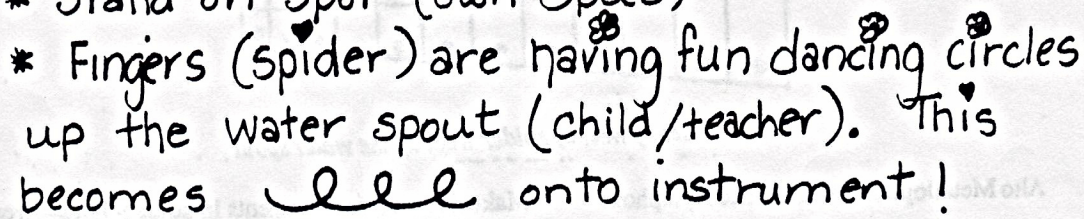 * Stand on spot (own space)
* Fingers (spider) are having fun dancing circles
up the water spout (child/teacher). This
becomes lll onto instrument!